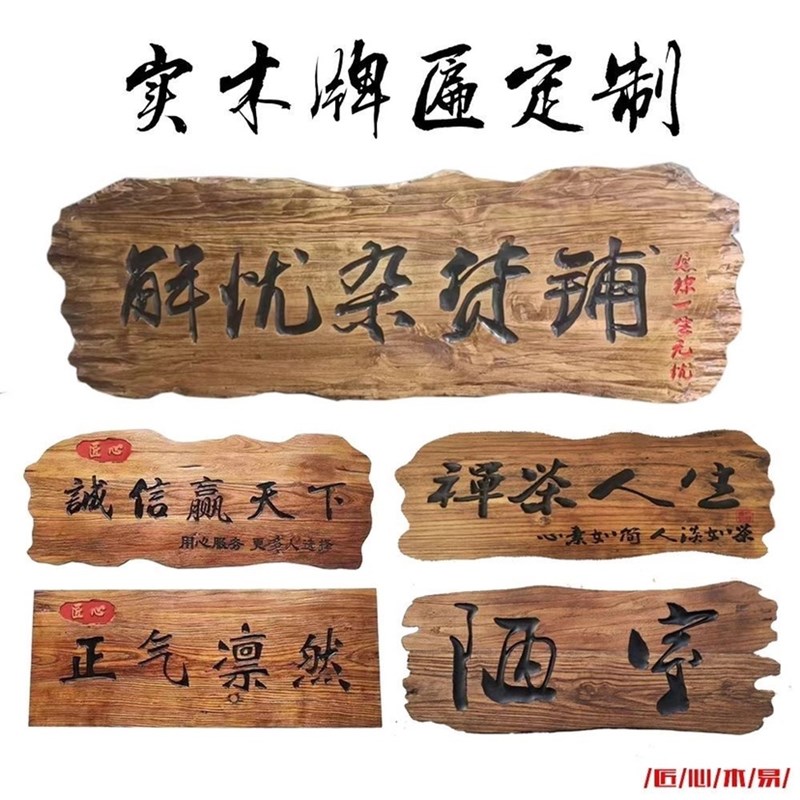 实木牌匾定制
解忧杂货铺
您你一生无忧
匠心
誠信赢天下
用心服务 更多人选择
禅茶人生
心素如简 人淡如茶
匠心
正气凛然
陋室
/匠/心/木/易/